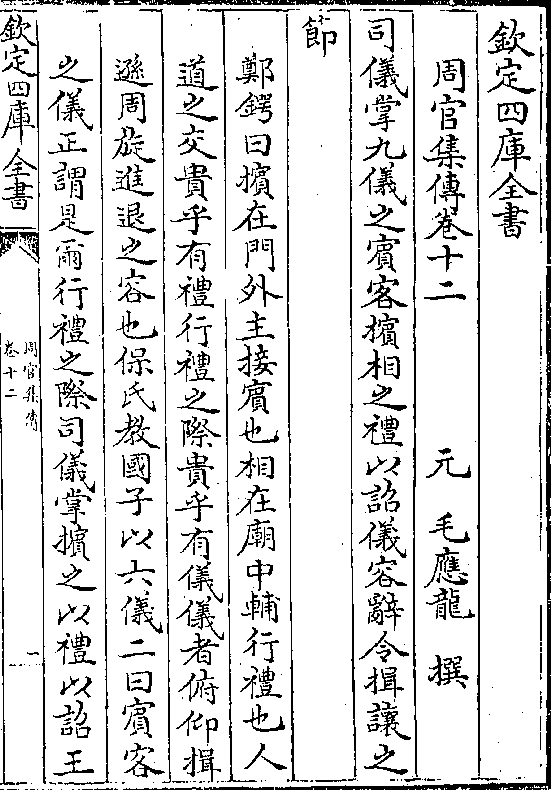 欽定四庫全書
周官集傳卷十二
元 毛應龍 撰
司儀掌九儀之賓客擯相之禮以詔儀容辭令揖讓之
節
鄭鍔曰擯在門外主接賓也相在廟中輔行禮也人
道之交貴乎有禮行禮之際貴乎有儀儀者俯仰揖
遜周旋進退之容也保氏教國子以六儀二曰賓客
之儀正謂是爾行禮之際司儀掌擯之以禮以詔王
欽定四庫全書
周官集傳
卷十二
一